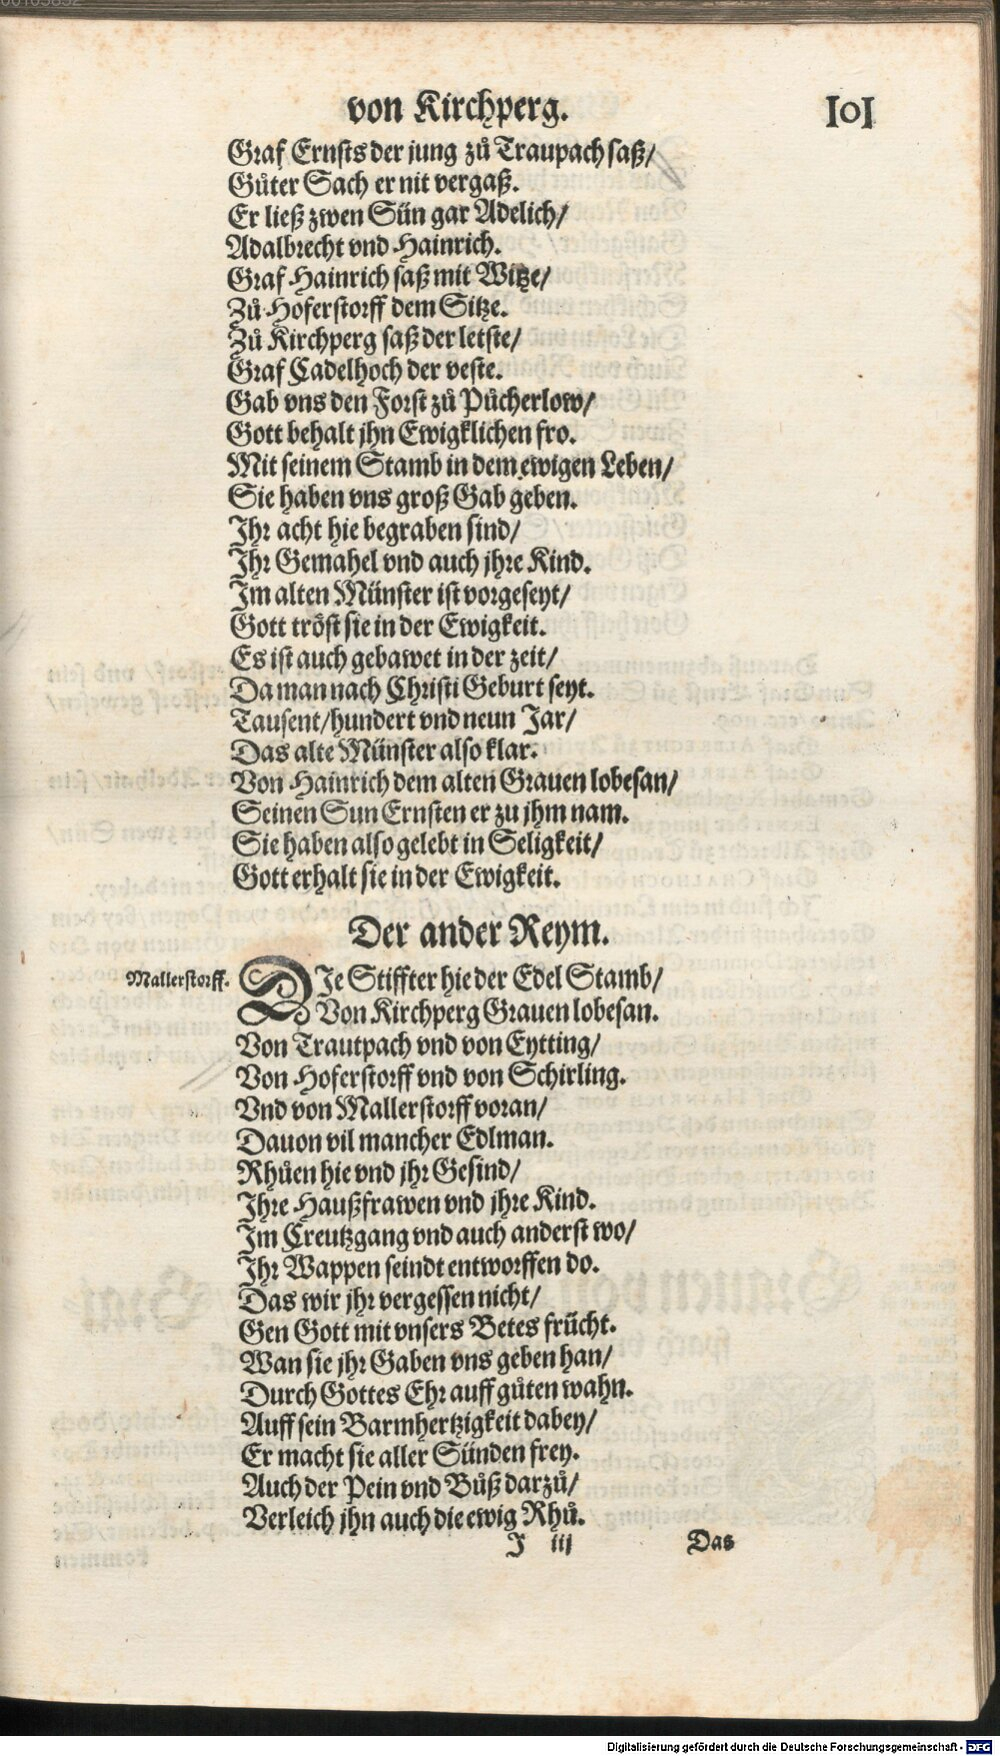 von Kirchperg. 101
Graf Ernsts der jung zů Traupach saß/
Gůter Sach er nit vergaß.
Er ließ zwen Sün gar Adelich/
Adalbrecht vnd Hainrich.
Graf Hainrich saß mit Witze/
Zů Hoferstorff dem Sitze.
Zů Kirchperg saß der letste/
Graf Cadelhoch der veste.
Gab vns den Forst zů Půcherlow/
Gott behalt jhn Ewigklichen fro.
Mit seinem Stamb in dem ewigen Leben/
Sie haben vns groß Gab geben.
Ihr acht hie begraben sind/
Ihr Gemahel vnd auch jhre Kind.
Im alten Münster ist vorgeseyt/
Gott tröst sie in der Ewigkeit.
Es ist auch gebawet in der zeit/
Da man nach Christi Geburt seyt.
Tausent/hundert vnd neun Jar/
Das alte Münster also klar.
Von Hainrich dem alten Grauen lobesan/
Seinen Sun Ernsten er zu jhm nam.
Sie haben also gelebt in Seligkeit/
Gott erhalt sie in der Ewigkeit.
Der ander Reym.
Mallerstorff. DIe Stiffter hie der Edel Stamb/
Von Kirchperg Grauen lobesan.
Von Trautpach vnd von Eytting/
Von Hoferstorff vnd von Schirling.
Vnd von Mallerstorff voran/
Dauon vil mancher Edlman.
Rhůen hie vnd jhr Gesind/
Ihre Haußfrawen vnd jhre Kind.
Im Creutzgang vnd auch anderst wo/
Ihr Wappen seindt entworffen do.
Das wir jhr vergessen nicht/
Gen Gott mit vnsers Betes frücht.
Wan sie jhr Gaben vns geben han/
Durch Gottes Ehr auff gůten wahn.
Auff sein Barmhertzigkeit dabey/
Er macht sie aller Sünden frey.
Auch der Pein vnd Bůß darzů/
Verleich jhn auch die ewig Rhů.
I iij Das
Digitalisierung gefördert durch die Deutsche Forschungsgemeinschaft - DFG